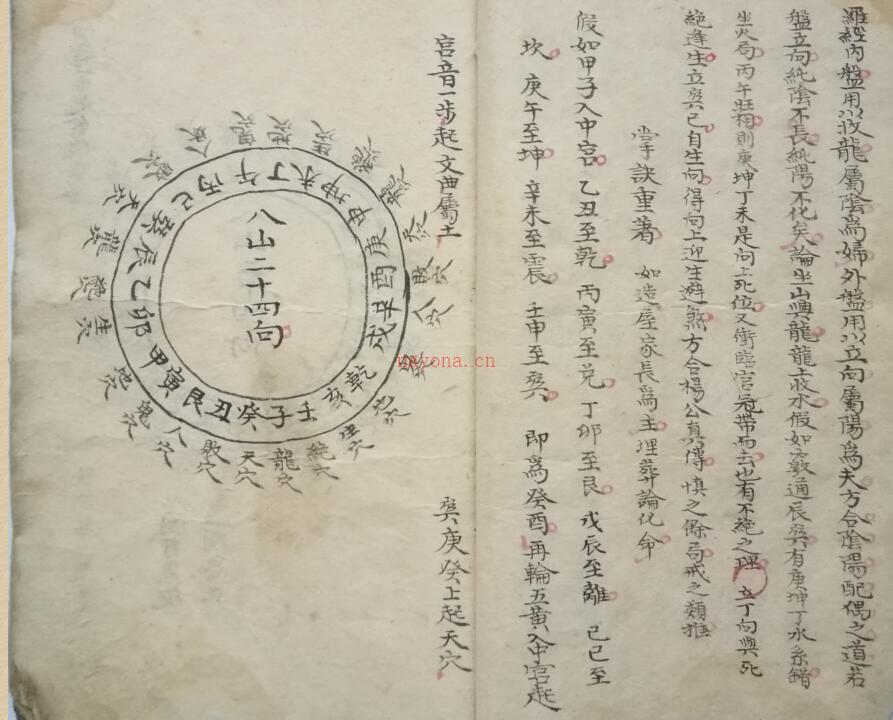 羅經內盤用以收龍屬陰為婦外盤用以立向屬陽為夫方合陰陽配偶之道若
盤立向純陰不長純陽不化矣論坐山與龍龍上收水假如辰巽有庚坤丁水系錯
坐火局丙午旺相則庚坤丁未是向上死位又衝臨官冠帶而去也有不絕之理立丁向與死
絕逢生立巽巳自生向得向上迎生避煞方合楊公真傳慎之餘局戒之類推
掌訣重著 如造屋家長為主埋葬論化命
假如甲子入中宮 乙丑至乾 丙寅至兌 丁卯至艮 戊辰至離 己巳至
坎 庚午至坤 辛未至震 壬申至巽 即為癸酉再輪五黃入中宮起
宮音一步起文曲屬土
巽庚癸上起天穴
八山二十四向
壬子癸丑艮寅甲卯乙辰巽巳丙午丁未坤申庚酉辛戌乾亥
絕穴
龍穴
天穴
敗穴
人穴
鬼穴
地穴
生穴
絕穴
龍
天穴
敗穴
人穴
鬼穴
地穴
生穴
絕
龍
天穴
敗穴
人穴
地穴
生穴
nayona.cn